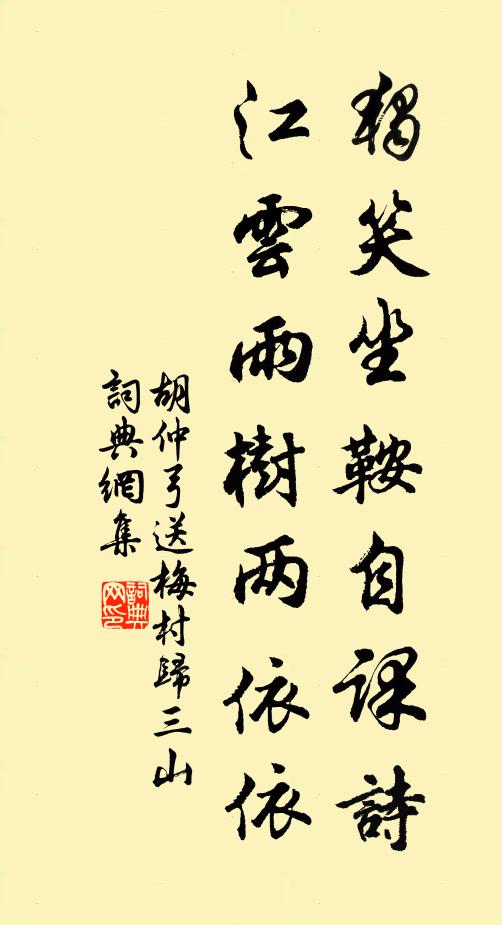 獨笑坐鞍自課詩
江雲雨樹两依依
胡仲弓送梅村歸三山
詞典網集
詞典网印